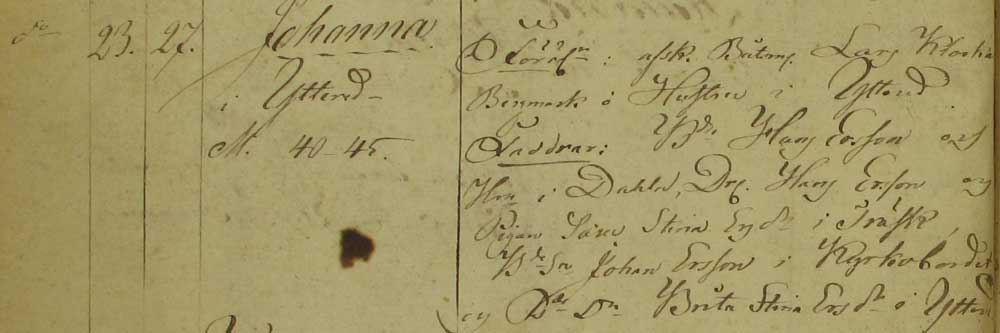 do 23. 27. Johanna
i Yttered
M. 40-45.
Föräldrar: afsk. Båtsm. Lars Klockar
Bergmark o Hustru i Yttered
Faddrar: Bdn Hans Ersson och
Hru i Dahla, Drg. Hans Ersson og
Pigan Sara Stina Ersdr i Träsk,
Bdesn Johan Ersson i Kyrkobordet
og Bde Dr Brita Stina Ersdr i Ytter